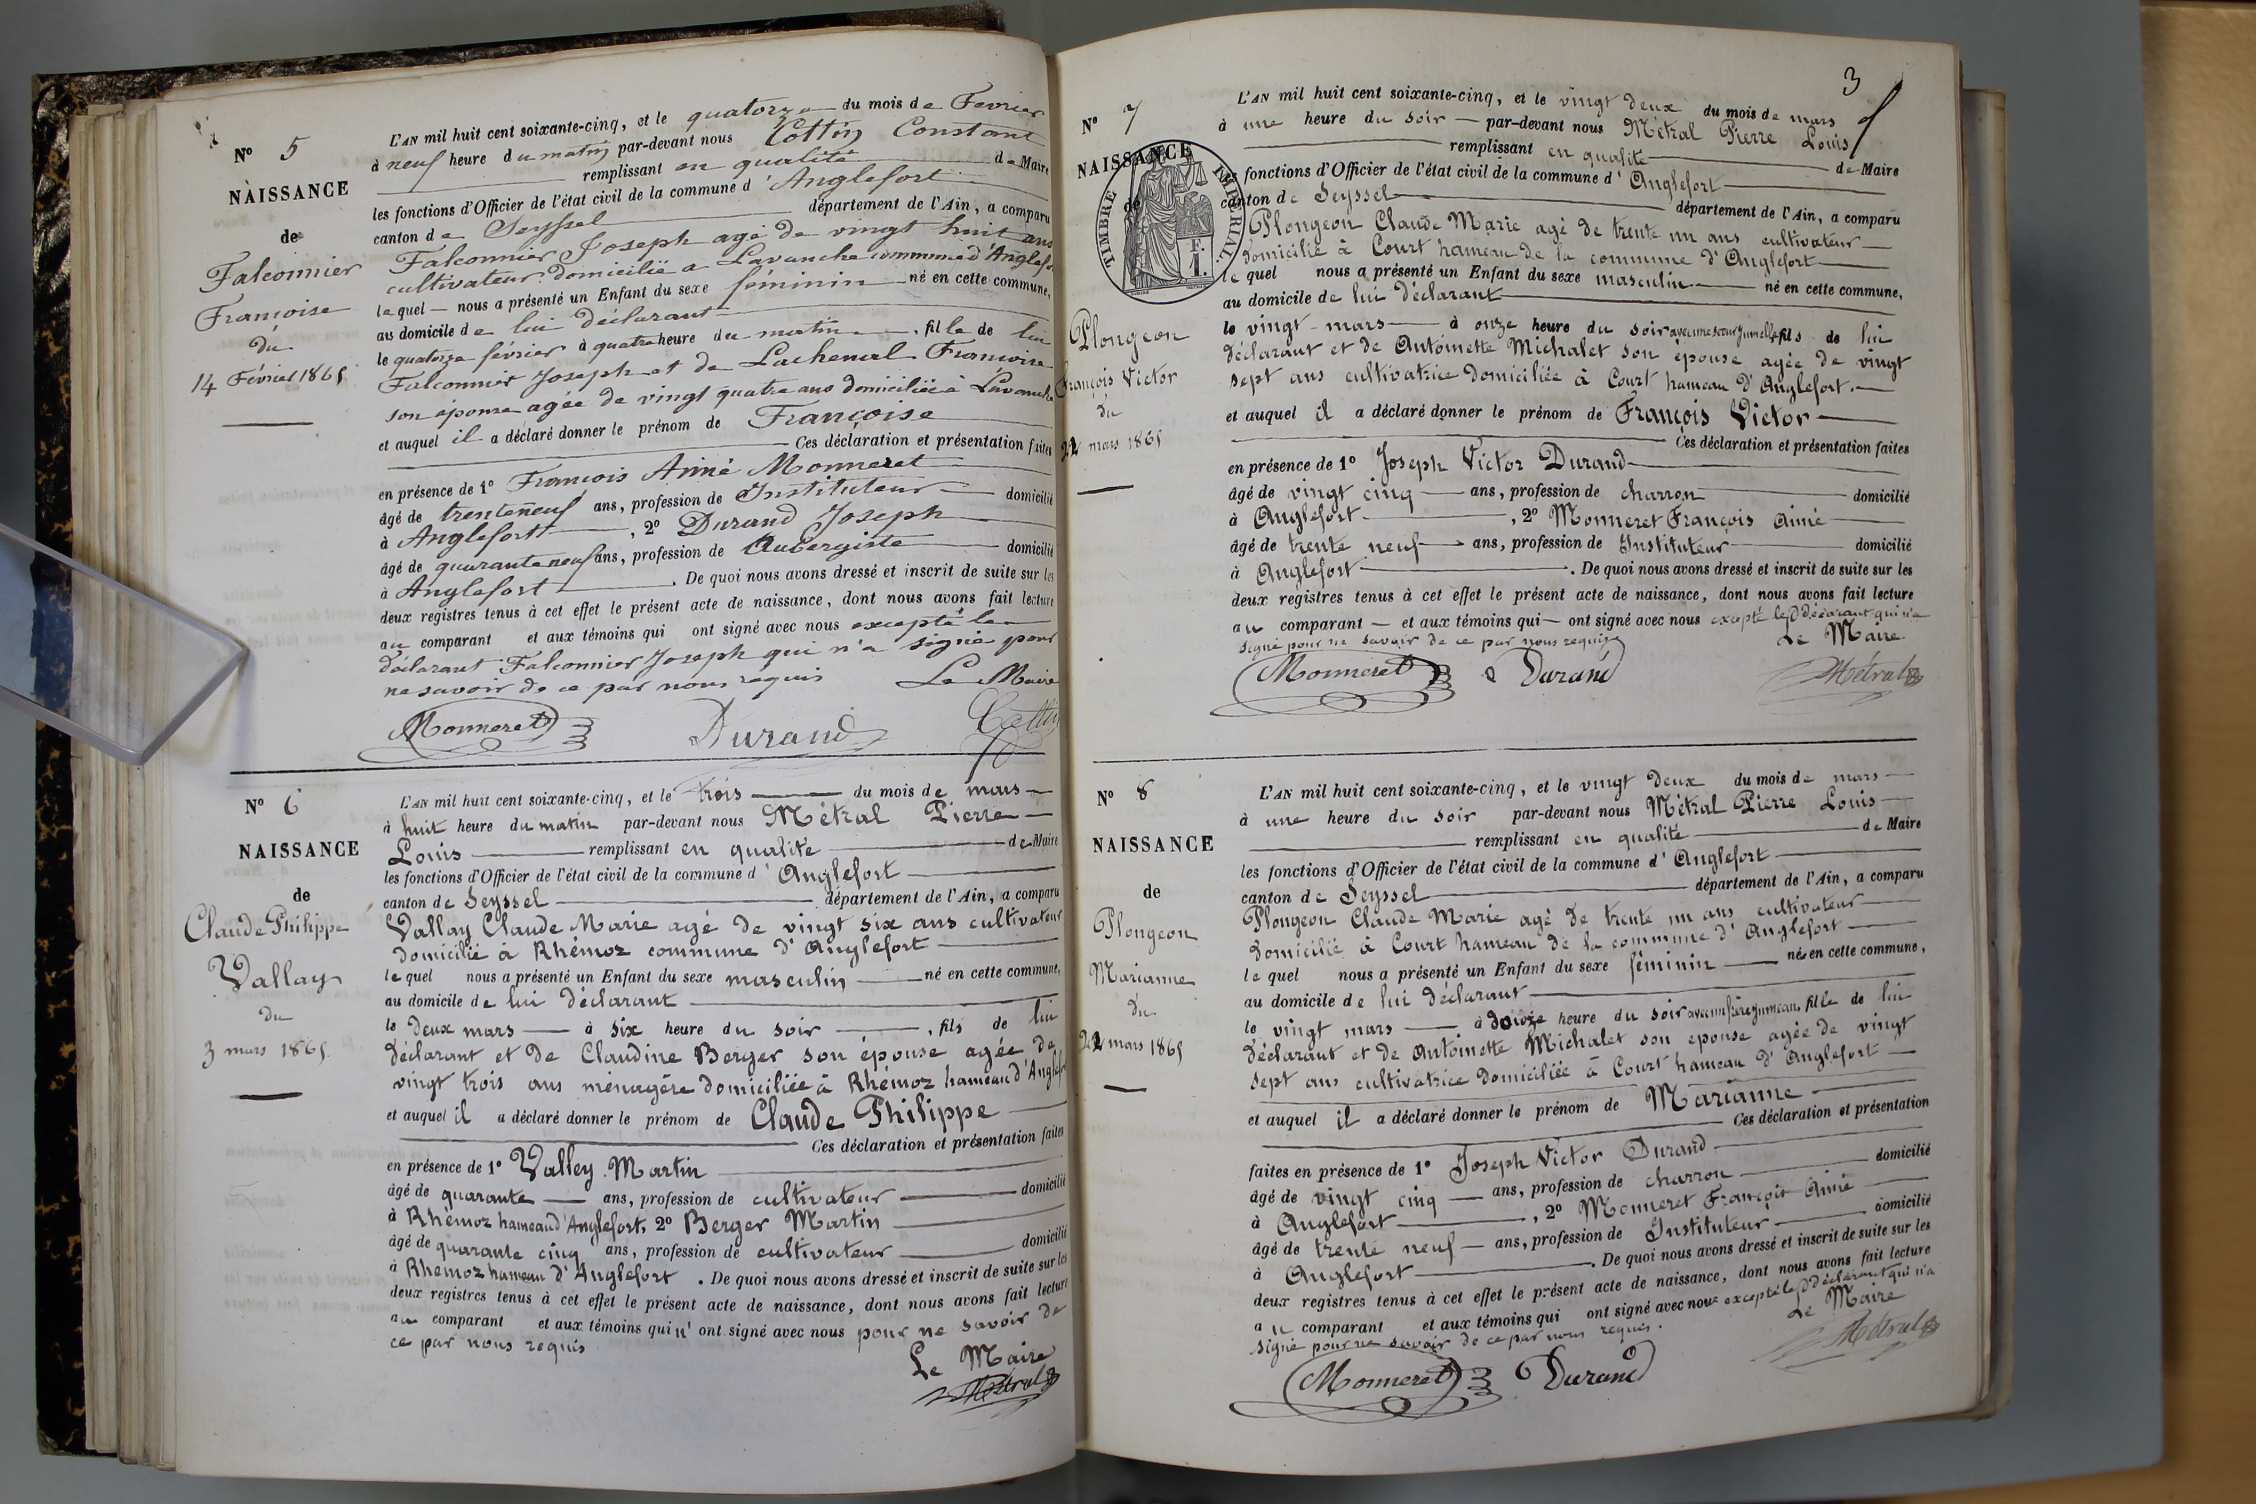 N° 5
NAISSANCE
de
Falconnier
Françoise
du
14 Février 1865
L'AN mil huit cent soixante-cinq, et le quatorze du mois de Fevrier
à neuf heure du matin par-devant nous Cottin Constant
remplissant en qualité de Maire
les fonctions d'Officier de l'état civil de la commune d'Anglefort
canton de Seyssel département de l'Ain, a comparu
Falconnier Joseph agé de vingt huit ans
cultivateur domicilié a Lavanche commune d'Anglefo
lequel nous a présenté un Enfant du sexe féminin né en cette commune,
au domicile de lui déclarant
le quatorze février à quatre heure du matin, fille de lui
Falconnier Joseph et de Lachenal Françoise
son épouse agée de vingt quatre ans domiciliée à Lavanche
et auquel il a déclaré donner le prénom de Françoise
Ces déclaration et présentation faites
en présence de 1° Francois Aimé Monneret
âgé de trenteneuf ans, profession de Instituteur domicilié
à Anglefort, 2° Durand Joseph
âgé de quaranteneuf ans, profession de Aubergiste domicilié
à Anglefort. De quoi nous avons dressé et inscrit de suite sur les
deux registres tenus à cet effet le présent acte de naissance, dont nous avons fait lecture
au comparant et aux témoins qui ont signé avec nous excepté le
déclarant Falconnier Joseph qui n'a signé pour
ne savoir de ce par nous requis Le Maire
Monneret Durand Cottin
N° 6
NAISSANCE
de
Claude Philippe
Vallay
du
3 mars 1865
L'AN mil huit cent soixante-cinq, et le trois du mois de mars
à huit heure du matin par-devant nous Métral Pierre
Louis remplissant en qualité de Maire
les fonctions d'Officier de l'état civil de la commune d'Anglefort
canton de Seyssel département de l'Ain, a comparu
Vallay Claude Marie agé de vingt six ans cultivateur
domicilié à Rhémoz commune d'Anglefort
lequel nous a présenté un Enfant du sexe masculin né en cette commune,
au domicile de lui déclarant
le deux mars à six heure du soir, fils de lui
déclarant et de Claudine Berger son épouse agée de
vingt trois ans ménagère domiciliée à Rhémoz hameau d'Anglefor
et auquel il a déclaré donner le prénom de Claude Philippe
Ces déclaration et présentation faites
en présence de 1° Valley Martin
âgé de quarante ans, profession de cultivateur domicilié
à Rhémoz hameau d'Anglefort, 2° Berger Martin
âgé de quarante cinq ans, profession de cultivateur domicilié
à Rhémoz hameau d'Anglefort. De quoi nous avons dressé et inscrit de suite sur les
deux registres tenus à cet effet le présent acte de naissance, dont nous avons fait lecture
au comparant et aux témoins qui n'ont signé avec nous pour ne savoir de
ce par nous requis
Le Maire
Métral
3
N° 7
NAISSANCE
de
TIMBRE IMPÉRIAL
Plongeon
François Victor
du
22 mars 1865
L'AN mil huit cent soixante-cinq, et le vingt deux du mois de mars
à une heure du soir par-devant nous Métral Pierre Louis
remplissant en qualité de Maire
les fonctions d'Officier de l'état civil de la commune d'Anglefort
canton de Seyssel département de l'Ain, a comparu
Plongeon Claude Marie agé de trente un ans cultivateur
domicilié à Court hameau de la commune d'Anglefort
lequel nous a présenté un Enfant du sexe masculin né en cette commune,
au domicile de lui déclarant
le vingt mars à onze heure du soir avec une soeur jumelle, fils de lui
déclarant et de Antoinette Michalet son épouse agée de vingt
sept ans cultivatrice domiciliée à Court hameau d'Anglefort.
et auquel il a déclaré donner le prénom de François Victor
Ces déclaration et présentation faites
en présence de 1° Joseph Victor Durand
âgé de vingt cinq ans, profession de charron domicilié
à Anglefort, 2° Monneret François Aimé
âgé de trente neuf ans, profession de Instituteur domicilié
à Anglefort. De quoi nous avons dressé et inscrit de suite sur les
deux registres tenus à cet effet le présent acte de naissance, dont nous avons fait lecture
au comparant et aux témoins qui ont signé avec nous excepté le déclarant qui n'a
signé pour ne savoir de ce par nous requis Le Maire
Monneret Durand Métral
N° 8
NAISSANCE
de
Plongeon
Marianne
du
22 mars 1865
L'AN mil huit cent soixante-cinq, et le vingt deux du mois de mars
à une heure du soir par-devant nous Métral Pierre Louis
remplissant en qualité de Maire
les fonctions d'Officier de l'état civil de la commune d'Anglefort
canton de Seyssel département de l'Ain, a comparu
Plongeon Claude Marie agé de trente un ans cultivateur
domicilié à Court hameau de la commune d'Anglefort
lequel nous a présenté un Enfant du sexe féminin née en cette commune,
au domicile de lui déclarant
le vingt mars à heure du soir avec un frère jumeau, fille de lui
déclarant et de Antoinette Michalet son epouse agée de vingt
sept ans cultivatrice domiciliée à Court hameau d'Anglefort
et auquel il a déclaré donner le prénom de Marianne
Ces déclaration et présentation
faites en présence de 1° Joseph Victor Durand
âgé de vingt cinq ans, profession de charron domicilié
à Anglefort, 2° Monneret François Aimé
âgé de trente neuf ans, profession de Instituteur domicilié
à Anglefort. De quoi nous avons dressé et inscrit de suite sur les
deux registres tenus à cet effet le présent acte de naissance, dont nous avons fait lecture
au comparant et aux témoins qui ont signé avec nous excepté le déclarant qui n'a
signé pour ne savoir de ce par nous requis. Le Maire
Monneret Durand Métral